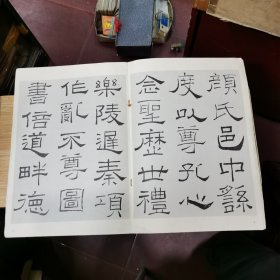 顏氏邑中繇
度以尊孔心
念聖歷世禮
樂陵遲秦項
作亂不尊圖
書倍道畔德